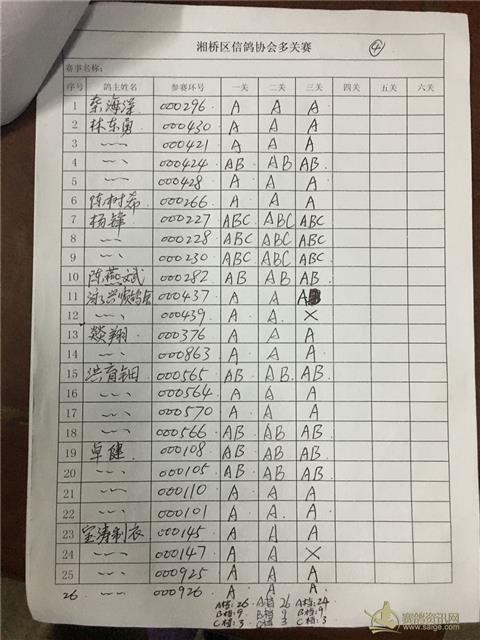 湘桥区信鸽协会多关赛 ④
赛事名称:
序号 鸽主姓名 参赛环号 一关 二关 三关 四关 五关 六关
1 海深 000296 A A A
2 林东勇 000430 A A A
3 〃 000421 A A A
4 〃 000424 AB AB AB
5 〃 000428 A A A
6 陈树希 000266 A A A
7 杨锋 000227 ABC ABC ABC
8 〃 000228 ABC ABC ABC
9 〃 000230 ABC ABC ABC
10 陈燕斌 000282 AB AB AB
11 000437 A A A
12 〃 000439 A A ×
13 燚翔 000376 A A A
14 〃 000863 A A A
15 洪育钿 000565 AB AB AB
16 〃 000564 A A A
17 〃 000570 A A A
18 〃 000566 AB AB AB
19 卓健 000108 AB AB AB
20 〃 000105 AB AB AB
21 〃 000110 A A A
22 〃 000101 A A A
23 宝涛制衣 000145 A A A
24 〃 000147 A A ×
25 〃 000925 A A A
26 〃 000926 A A A
A档:26 A档 26 A档:24
B档:9 B档 9 B档:9
C档:3 C档 3 C档:3
赛鸽资讯网
www.saige.com